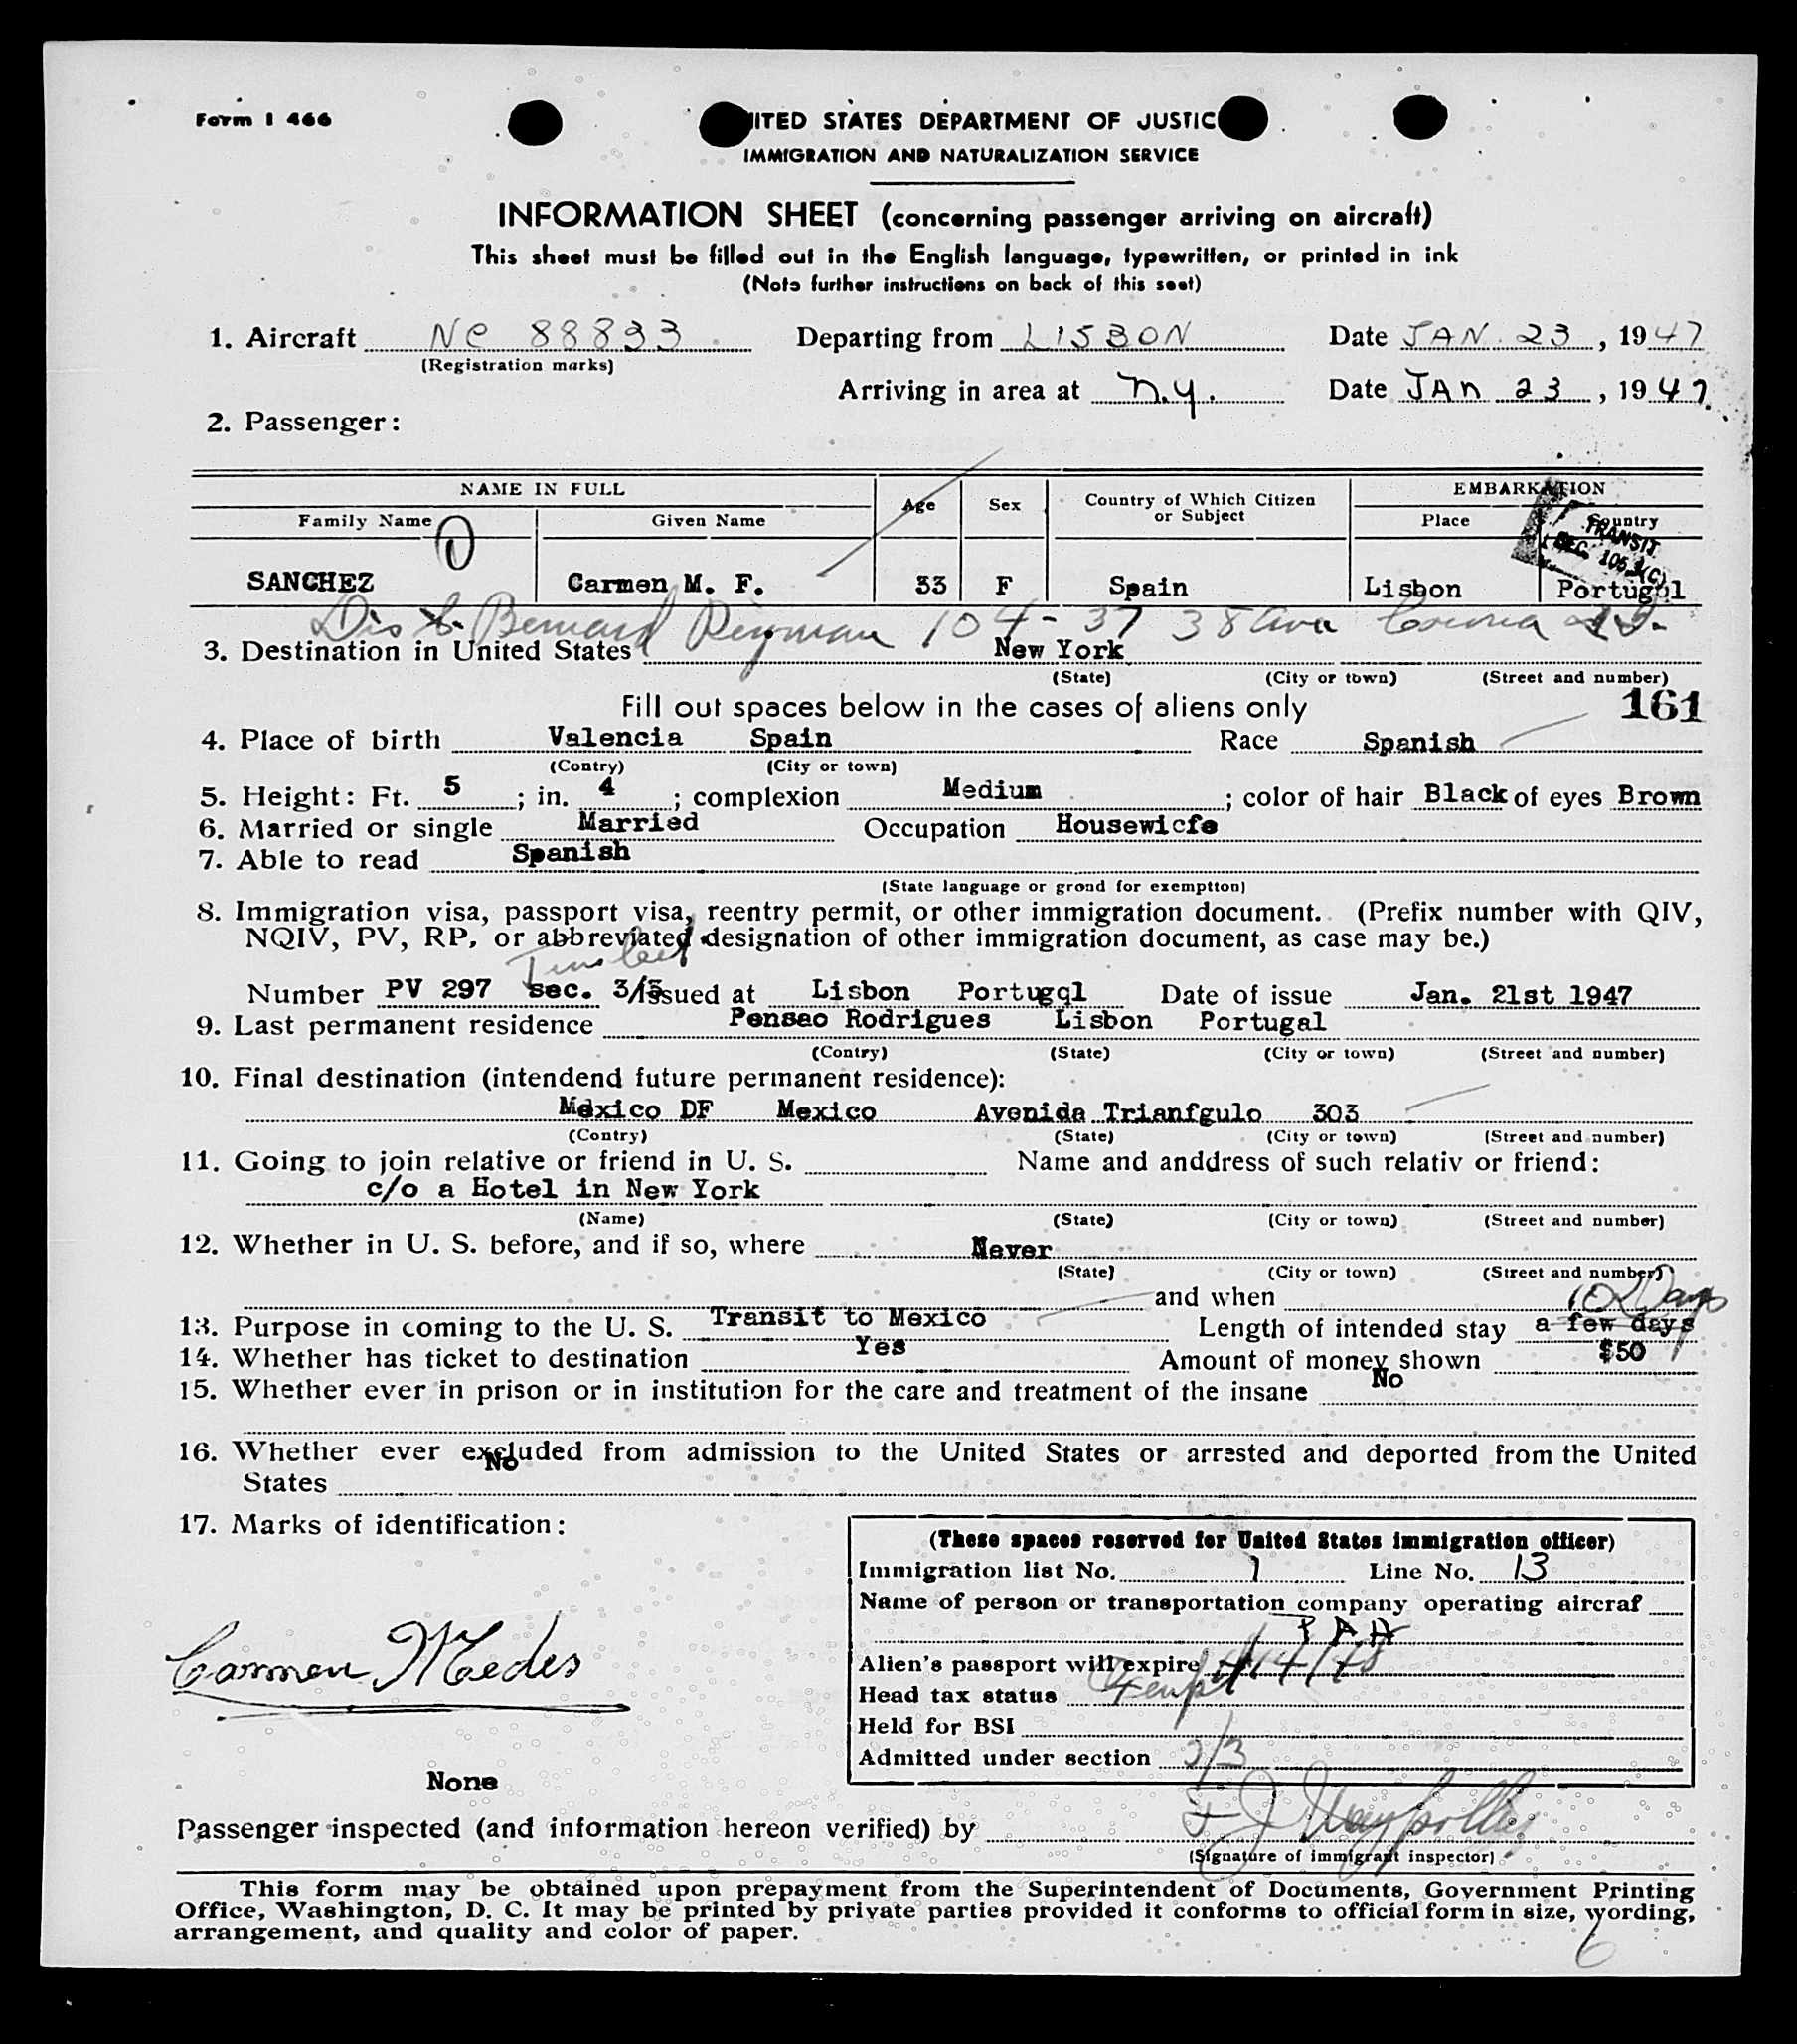 Form I 466
ITED STATES DEPARTMENT OF JUSTIC
IMMIGRATION AND NATURALIZATION SERVICE
INFORMATION SHEET (concerning passenger arriving on aircraft)
This sheet must be filled out in the English language, typewritten, or printed in ink
(Note further instructions on back of this seet)
1. Aircraft NC 88833 Departing from LISBON Date JAN. 23, 1947
(Registration marks)
Arriving in area at N.Y. Date JAN 23, 1947.
2. Passenger:
NAME IN FULL Age Sex Country of Which Citizen or Subject EMBARKATION
Family Name Given Name Place Country
TRANSIT
SEC. 105.3(C)
SANCHEZ Carmen M. F. 33 F Spain Lisbon Portugal
Bernard 104-37 38 Ave Corona
3. Destination in United States New York
(State) (City or town) (Street and number)
Fill out spaces below in the cases of aliens only 161
4. Place of birth Valencia Spain Race Spanish
(Contry) (City or town)
5. Height: Ft. 5; in. 4; complexion Medium; color of hair Black of eyes Brown
6. Married or single Married Occupation Housewicfe
7. Able to read Spanish
(State language or grond for exemptton)
8. Immigration visa, passport visa, reentry permit, or other immigration document. (Prefix number with QIV,
NQIV, PV, RP, or abbreviated designation of other immigration document, as case may be.)
Number PV 297 sec. 3/3 Issued at Lisbon Portugql Date of issue Jan. 21st 1947
9. Last permanent residence Pensao Rodrigues Lisbon Portugal
(Contry) (State) (City or town) (Street and number)
10. Final destination (intendend future permanent residence):
Mexico DF Mexico Avenida Trianfgulo 303
(Contry) (State) (City or town) (Street and number)
11. Going to join relative or friend in U. S. Name and anddress of such relativ or friend:
c/o a Hotel in New York
(Name) (State) (City or town) (Street and number)
12. Whether in U. S. before, and if so, where Never
(State) (City or town) (Street and number)
and when
10 Days
13. Purpose in coming to the U. S. Transit to Mexico Length of intended stay a few days
14. Whether has ticket to destination Yes Amount of money shown $50
15. Whether ever in prison or in institution for the care and treatment of the insane No
16. Whether ever excluded from admission to the United States or arrested and deported from the United
States No
17. Marks of identification:
(These spaces reserved for United States immigration officer)
Immigration list No. 1 Line No. 13
Name of person or transportation company operating aircraf
P A A
Alien's passport will expire
Head tax status
Held for BSI
Admitted under section 3/3
Carmen
None
Passenger inspected (and information hereon verified) by F J
(Signature of immigrant inspector)
This form may be obtained upon prepayment from the Superintendent of Documents, Government Printing
Office, Washington, D. C. It may be printed by private parties provided it conforms to official form in size, wording,
arrangement, and quality and color of paper.
6